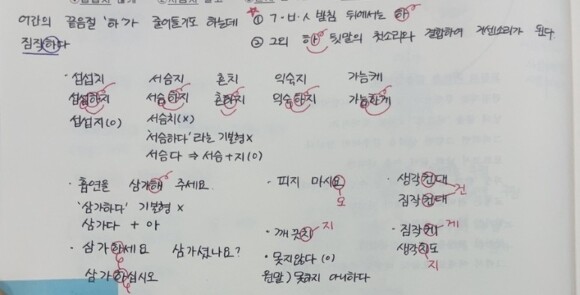 어간의 끝음절 '하'가 줄어들기도 하는데
짐작하다
① ㄱ·ㅂ·ㅅ 받침 뒤에서는 하
② 그외 하 뒷말의 첫소리와 결합하여 거센소리가 된다
· 섭섭지 서슴지 흔치 익숙지 가능케
섭섭하지 서슴하지 흔하지 익숙하지 가능하게
섭섭지(O) 서슴치(X)
'서슴하다'라는 기본형 X
서슴다 ⇒ 서슴+지(O)
· 흡연을 삼가해 주세요.
'삼가하다' 기본형 X
삼가다 + 아
· 삼가하세요 삼가셨나요?
삼가하십시오
· 피지 마시요
오
· 깨끗치
지
· 못지않다 (O)
원말) 못하지 아니하다
· 생각컨대
짐작컨대
건
· 짐작케
게
생각치도
지